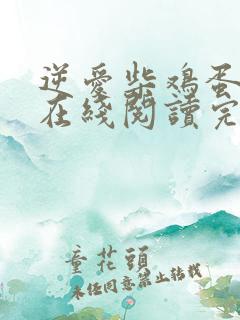 逆愛柴鸡蛋
在綫閱讀完
童花頭
未经同意禁止转载